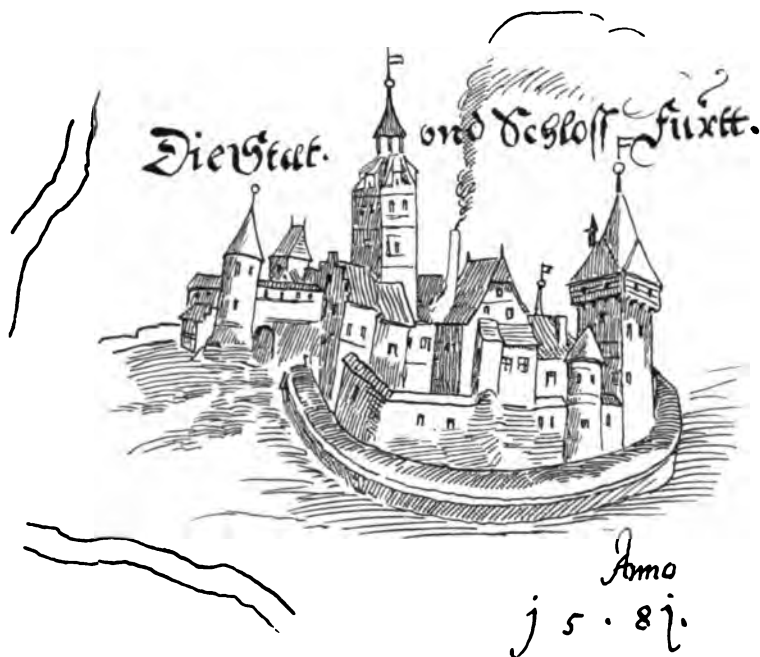 Die Stat. vnd Schloss Furtt.
Anno
j 5 . 8 j.